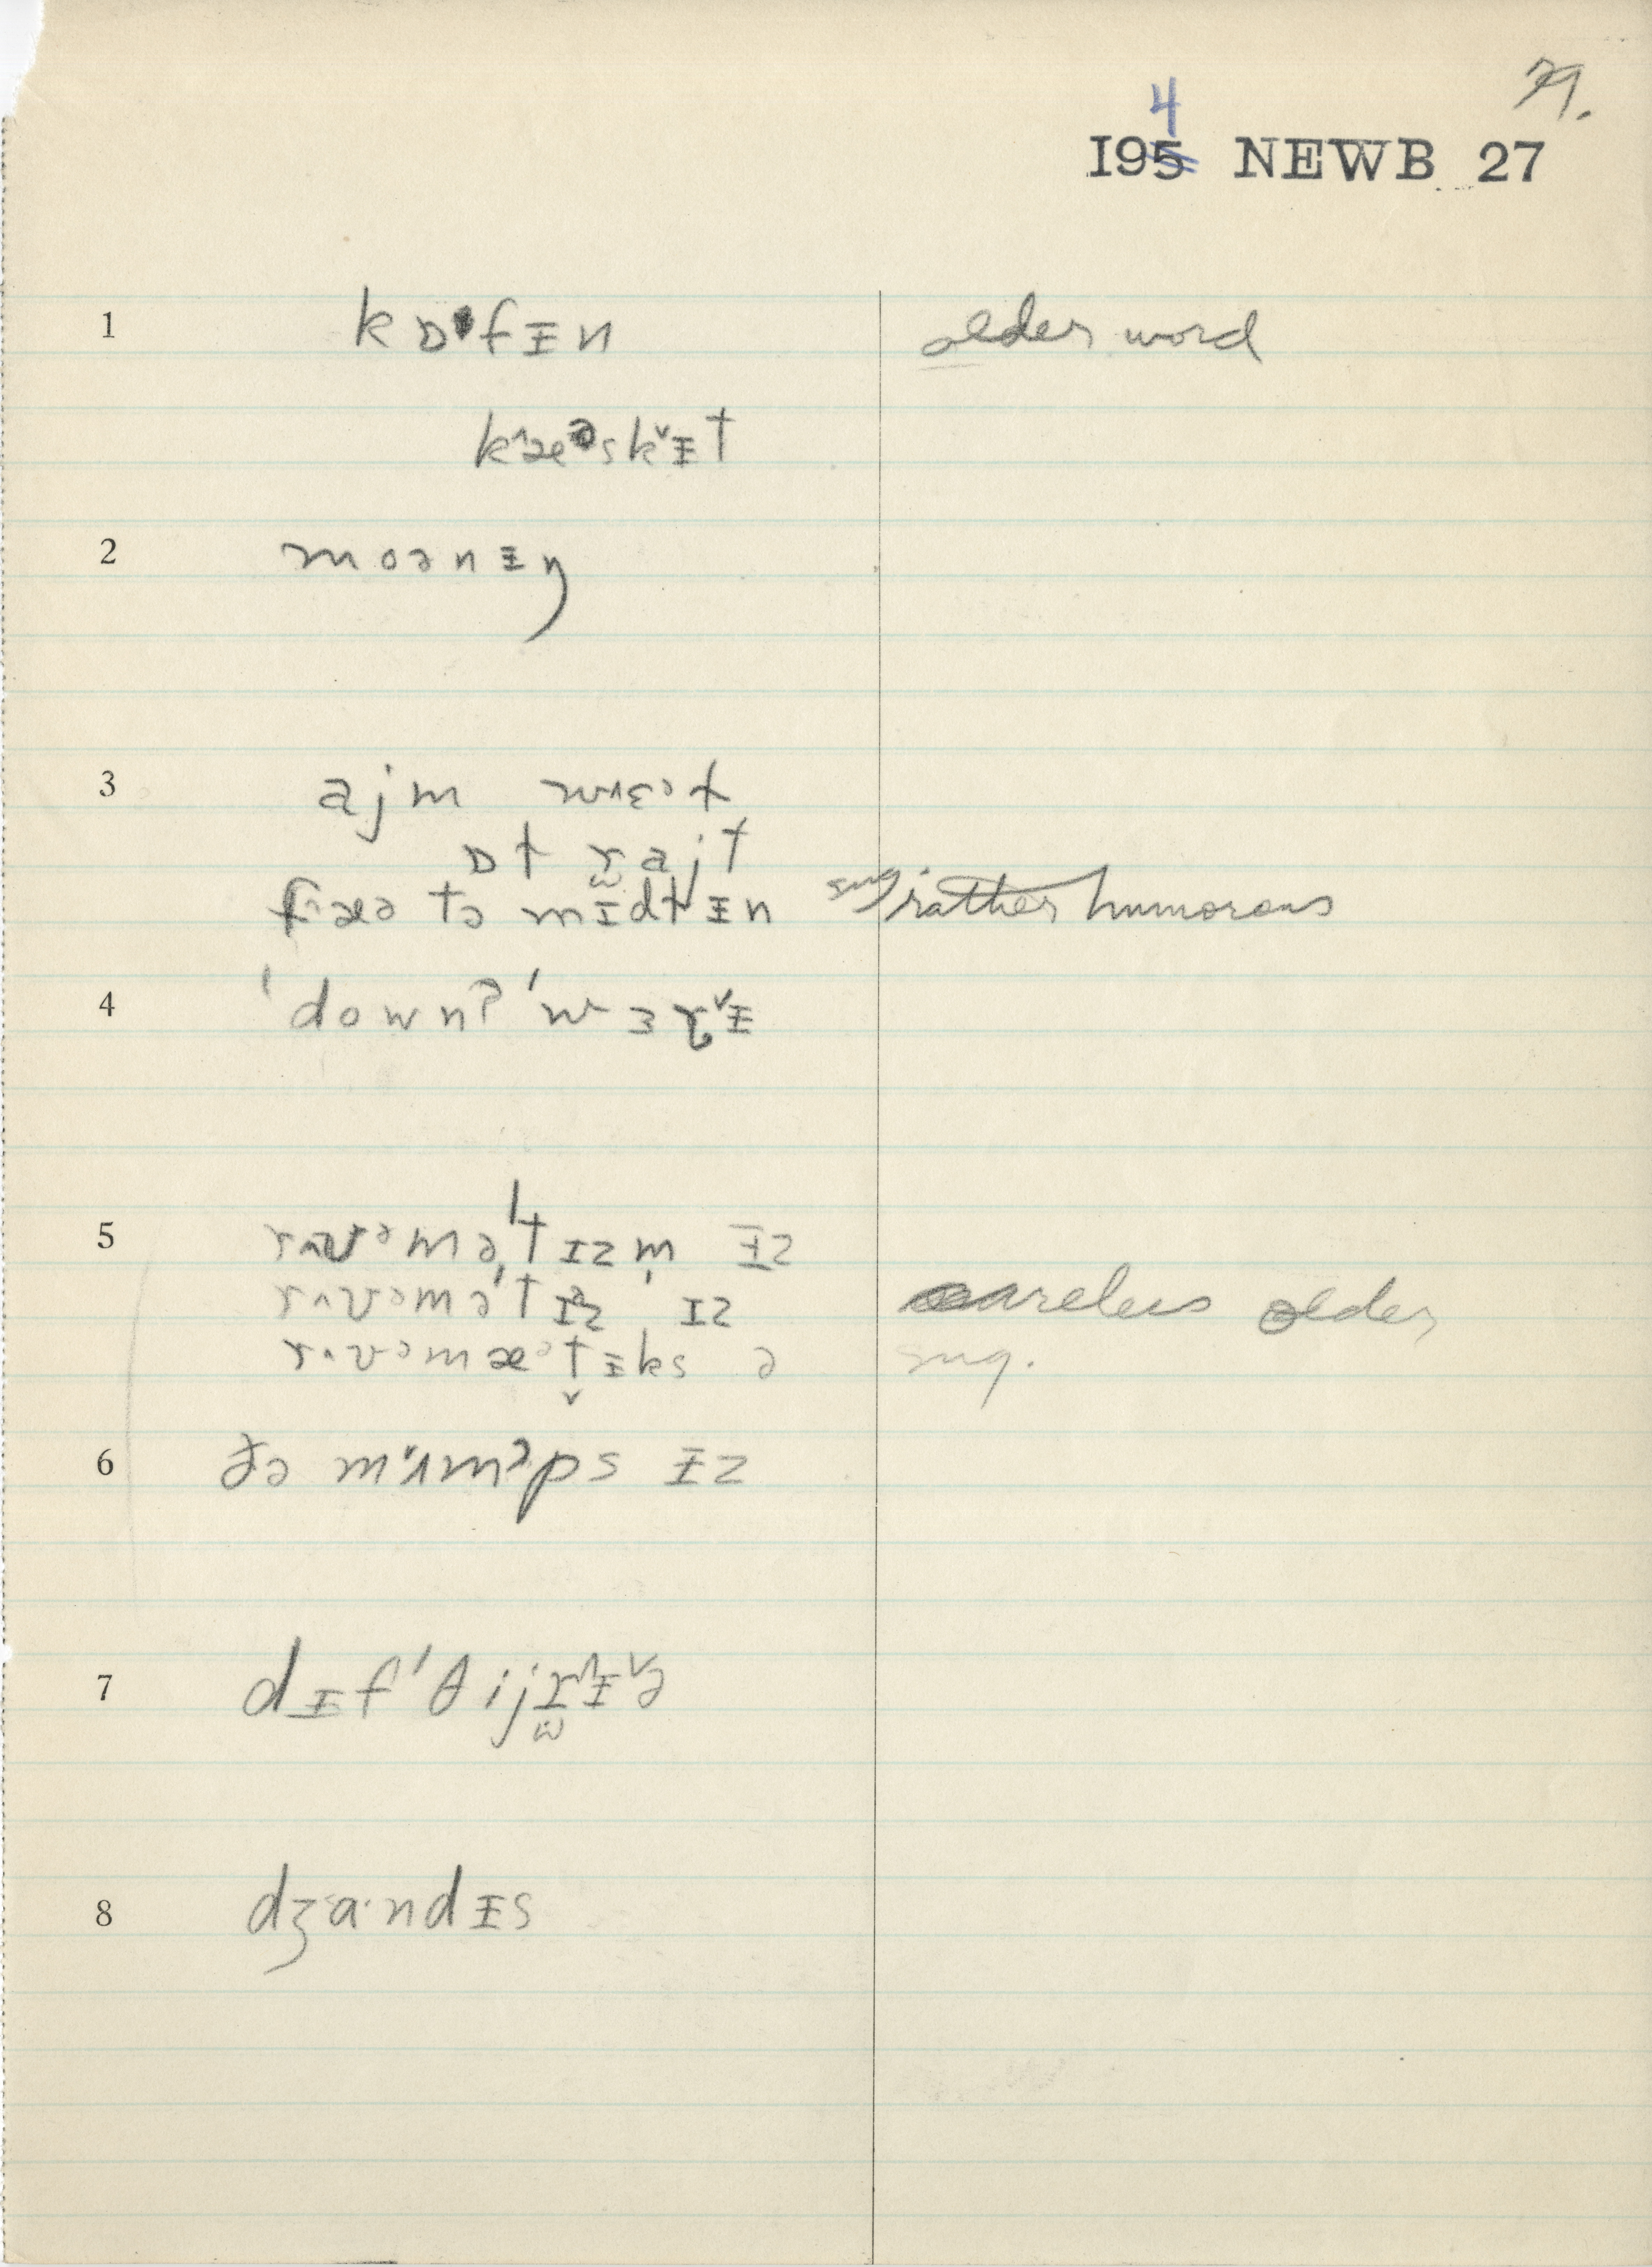 79.
4
195 NEWB 27
1 kɒ·fᵻn older word
kæᵊskᵻt
2 moənᵻŋ
3 ajm wɛət
ɒt rajt
fæə tə mɪdlᵻn sug rather humorous
4 'down? 'wɜrᵻ
5 rʌvᵊmə'tɪzm̩ ᵻz
rʌvᵊmə'tɪz ɪz careless older
rʌvᵊmæᵊtᵻks ə sug.
6 ðə mʌmᵊps ᵻz
7 dᵻf'θijrᵻə
8 dʒa·ndᵻs